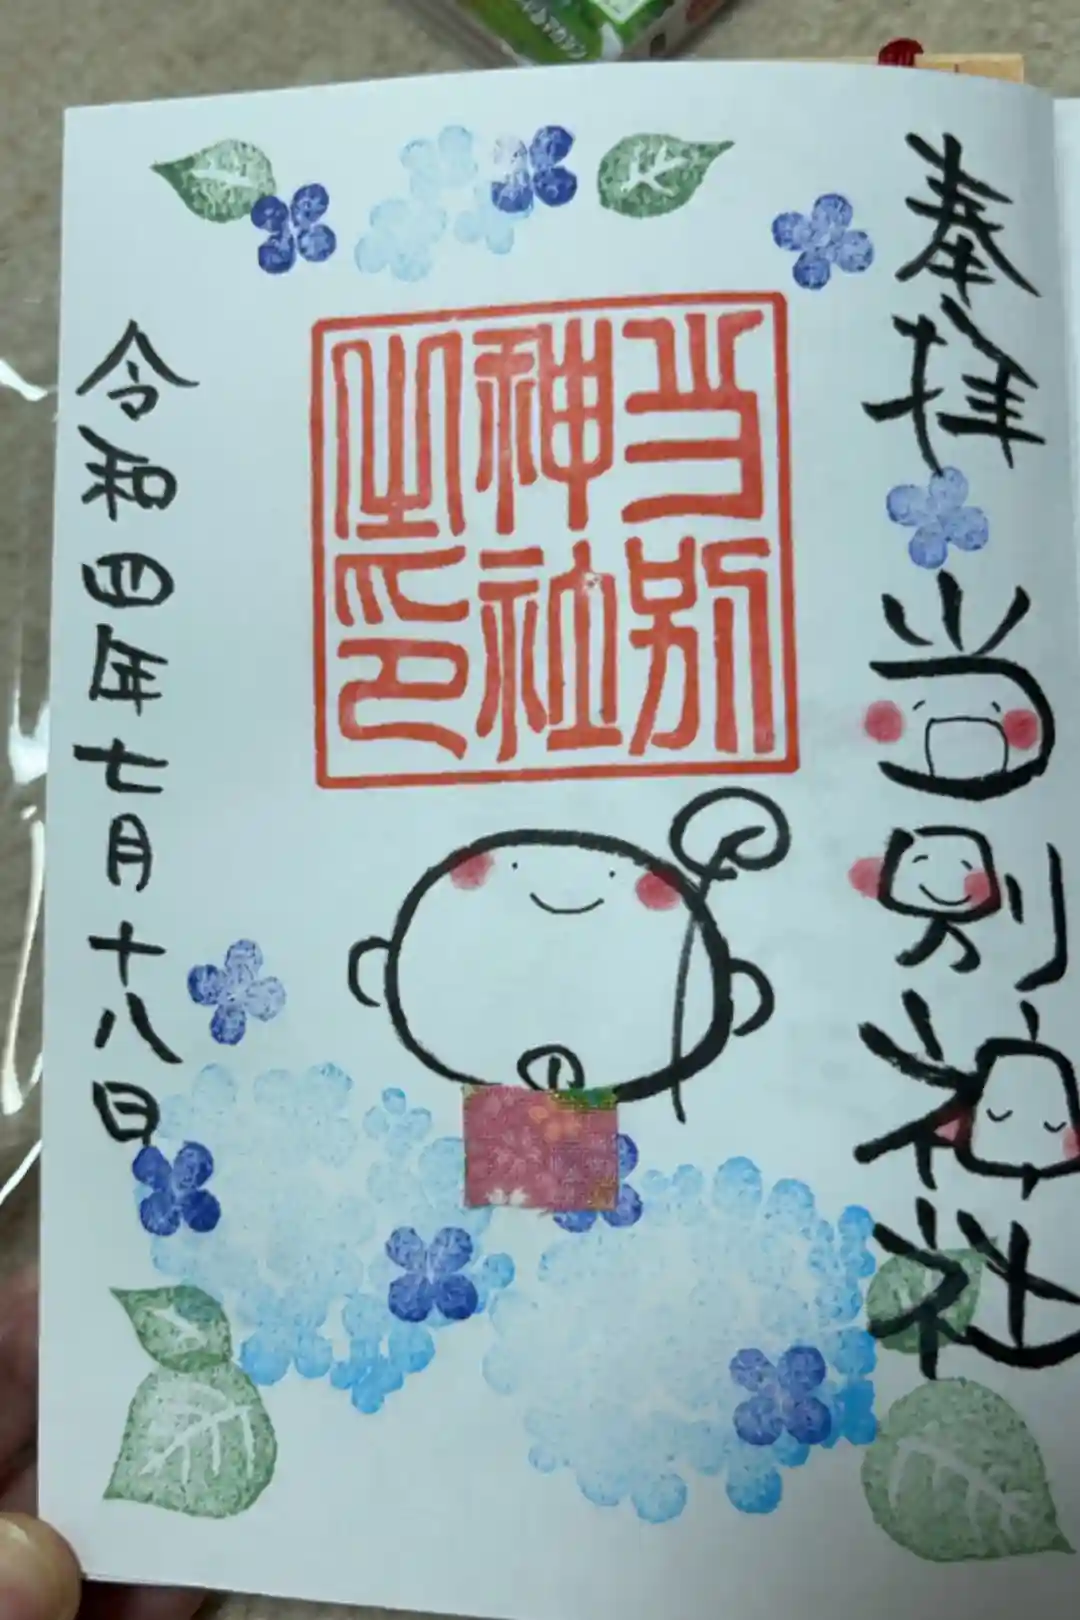 奉拝
当別神社
当別
神社
之印
令和四年七月十八日